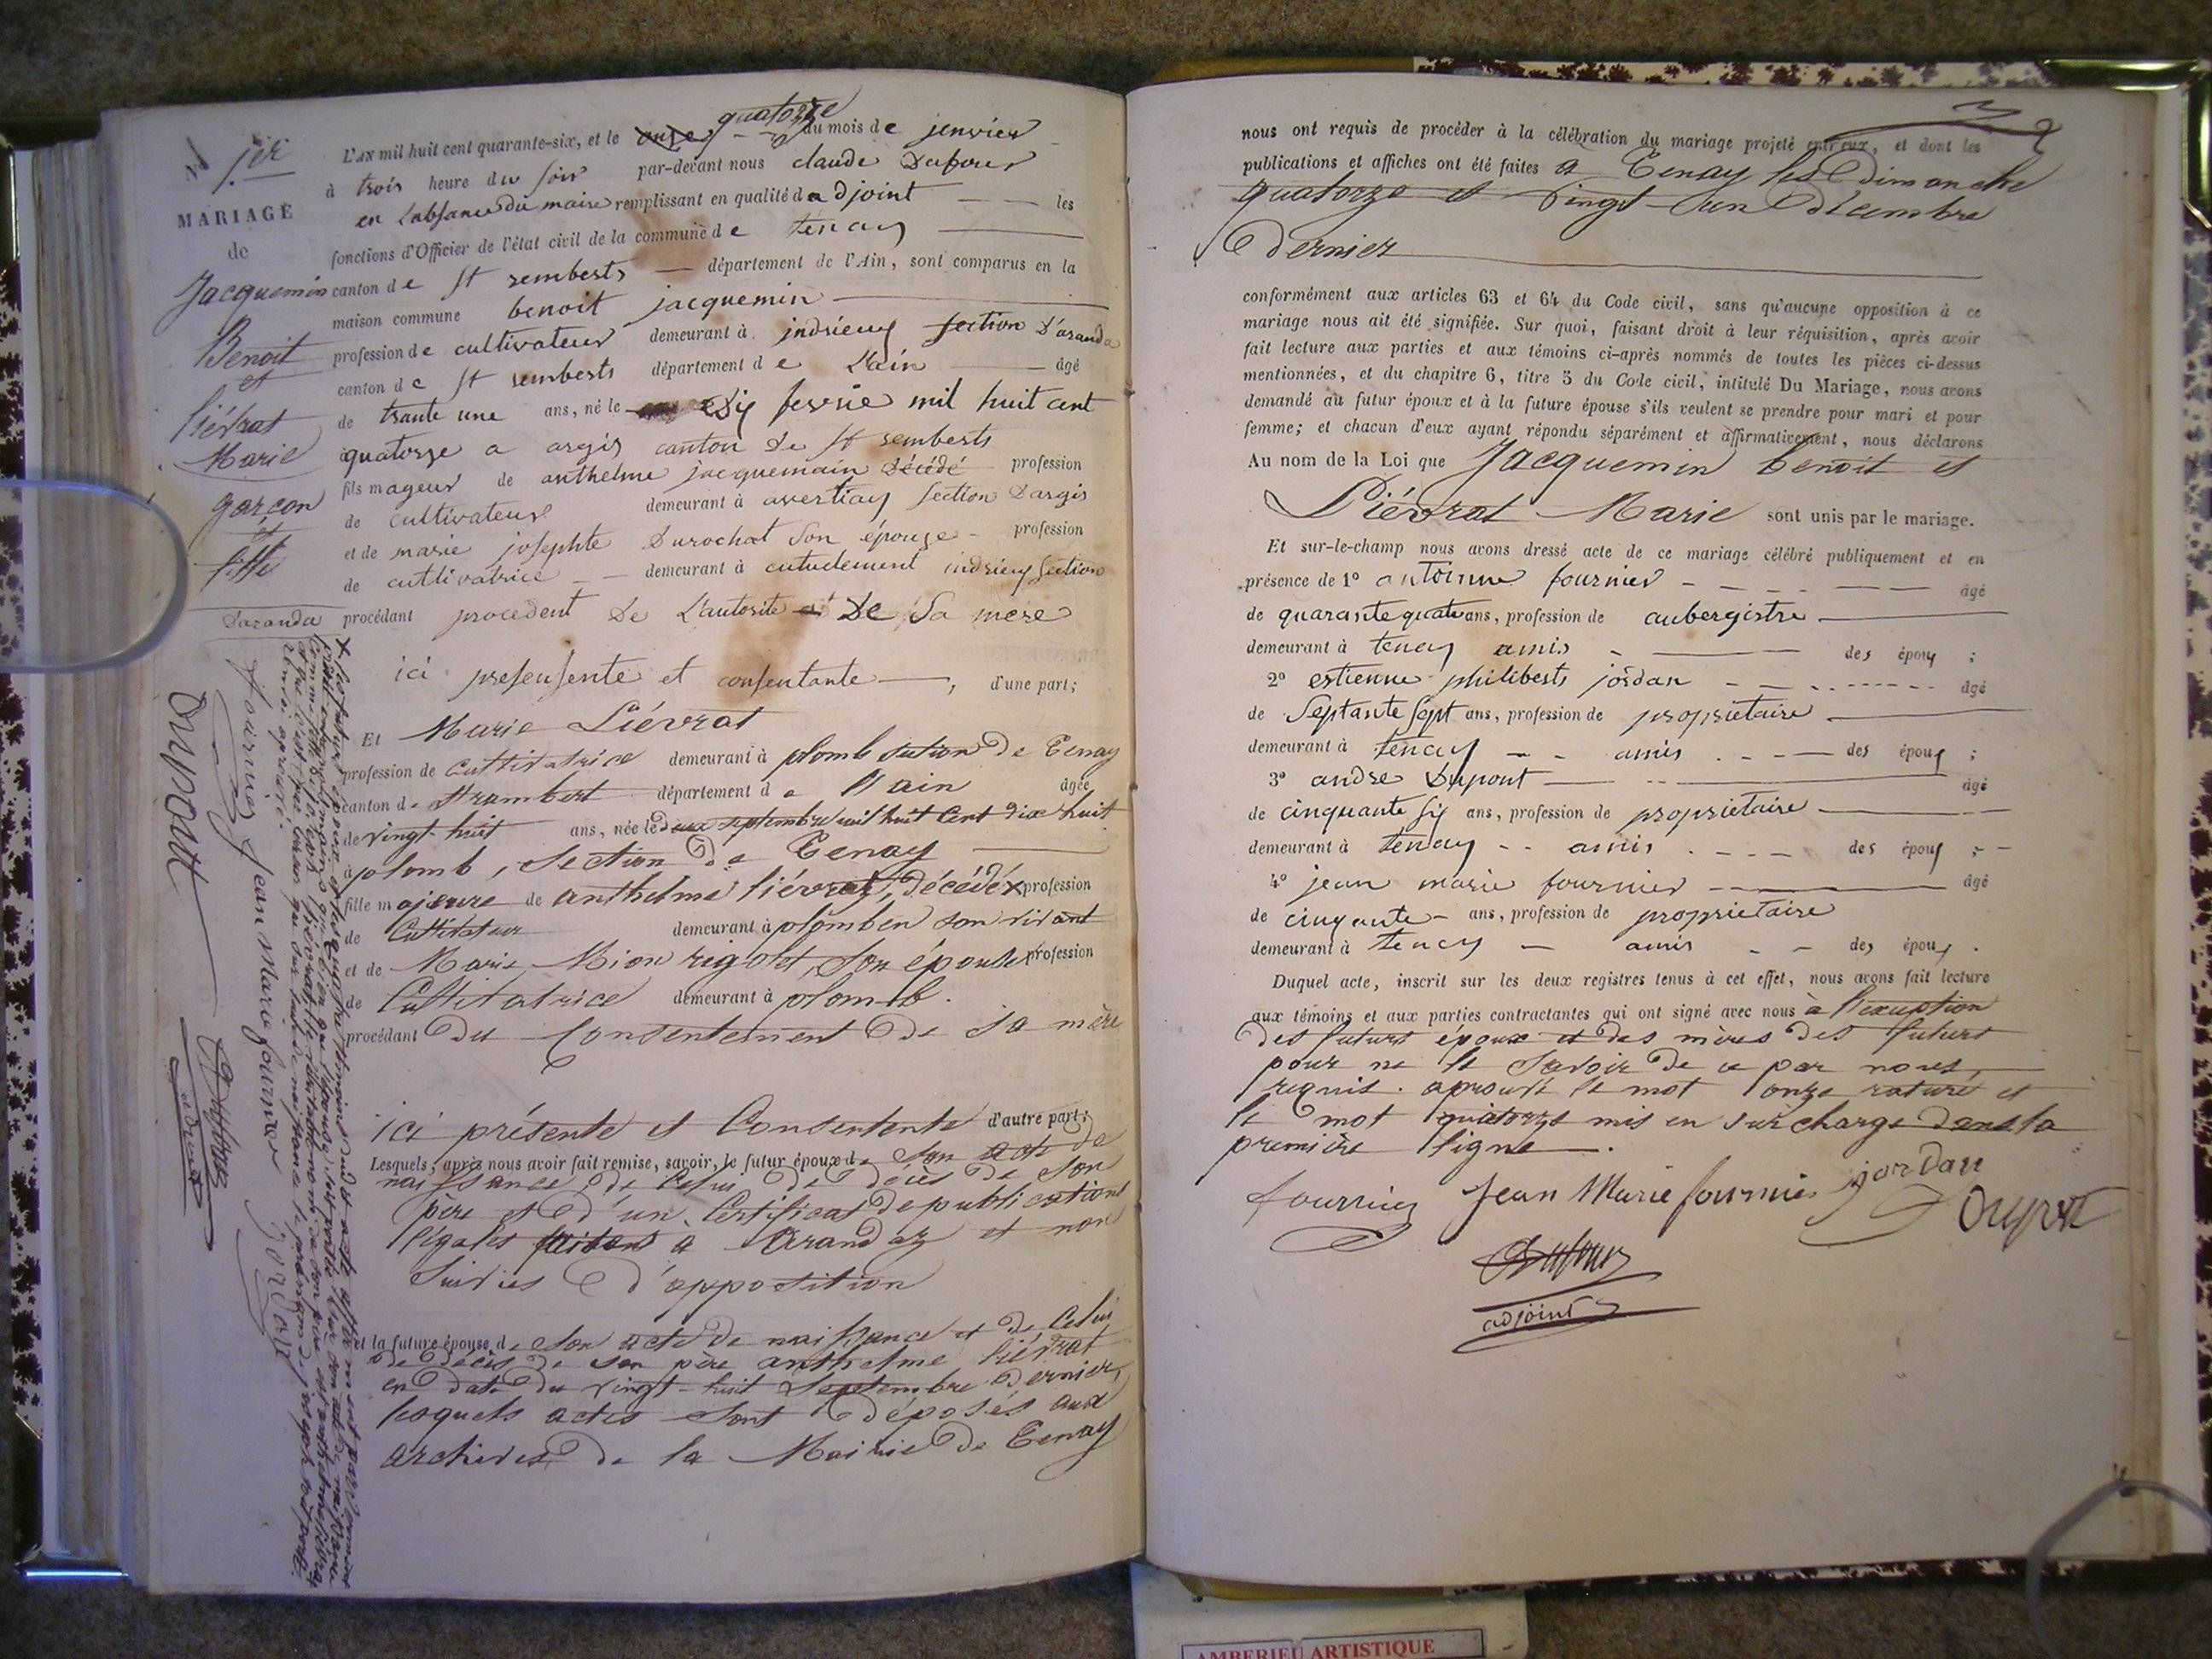 N° 1.er
MARIAGE
de
Jacquemin
Benoit
et
liévrat
Marie
garçon
et
fille
L'AN mil huit cent quarante-six, et le onze quatorze du mois de jenvier
à trois heure du soir par-devant nous claude Dufour
en l'absance du maire remplissant en qualité d adjoint les
fonctions d'Officier de l'état civil de la commune de tenay
canton de St remberts département de l'Ain, sont comparus en la
maison commune benoit jacquemin
profession de cultivateur demeurant à indrieux section d'aranda
canton de St remberts département de L'ain âgé
de trante une ans, né le dix fevrie mil huit cent
quatorze a argis canton de St remberts
fils mageur de anthelme jacquemain décédé profession
de cultivateur demeurant à avertiay section dargis
et de marie josephte Durochat son épouse profession
de cultivatrice demeurant à indrieux section
daranda procédant procedent de L'autorite de sa mere
ici presensente et consentante, d'une part;
Et Marie Liévrat
profession de Cultivatrice demeurant à plomb section de Tenay
canton de St rambert département de l'ain âgée
de vingt-huit ans, née le deux septembre mil huit cent dix huit
à plomb, section de Tenay
fille majeure de anthelme liévrat, décédé x profession
de Cultivateur demeurant à plomb en son vivant
et de Marie Mion rigolet, son épouse profession
de Cultivatrice demeurant à plomb.
procédant du Consentement de sa mère
ici présente et Consentente d'autre part;
Lesquels, après nous avoir fait remise, savoir, le futur époux de son acte de
naissance, de Celui de décès de son
père et d'un Certificat de publications
légales faites a Arandaz et non
suivies d'opposition
et la future épouse de son acte de naissance et de Celui
de décès de son père anthelme liévrat
en date du vingt-huit Septembre dernier,
lesquels actes sont déposés aux
archives de la Mairie de Tenay
fournier jean marie fournier jordan
Dupont
Dufour
adjoint
nous ont requis de procéder à la célébration du mariage projeté entr'eux, et dont les
publications et affiches ont été faites à Tenay les dimanche
quatorze et vingt-un décembre
dernier
conformément aux articles 63 et 64 du Code civil, sans qu'aucune opposition à ce
mariage nous ait été signifiée. Sur quoi, faisant droit à leur réquisition, après avoir
fait lecture aux parties et aux témoins ci-après nommés de toutes les pièces ci-dessus
mentionnées, et du chapitre 6, titre 5 du Code civil, intitulé Du Mariage, nous avons
demandé au futur époux et à la future épouse s'ils veulent se prendre pour mari et pour
femme; et chacun d'eux ayant répondu séparément et affirmativement, nous déclarons
Au nom de la Loi que Jacquemin benoit et
Liévrat Marie sont unis par le mariage.
Et sur-le-champ nous avons dressé acte de ce mariage célébré publiquement et en
présence de 1° antoinne fournier âgé
de quarante quatre ans, profession de aubergistre
demeurant à tenay amis des époux ;
2° estienne philiberts jordan âgé
de septante sept ans, profession de proprietaire
demeurant à tenay amis des époux ;
3° andre Dupont âgé
de cinquante six ans, profession de proprietaire
demeurant à tenay amis des époux ;
4° jean marie fournier âgé
de cinquante ans, profession de proprietaire
demeurant à tenay amis des époux .
Duquel acte, inscrit sur les deux registres tenus à cet effet, nous avons fait lecture
aux témoins et aux parties contractantes qui ont signé avec nous à l'exception
des futurs époux et des mères des futurs
pour ne le savoir de ce par nous
requis. aprouvé le mot onze raturé et
le mot quatorze mis en surcharge dans la
première ligne.
fournier Jean Marie fournier jordan
Dupont
Dufour
adjoint
AMBERIEU ARTISTIQUE